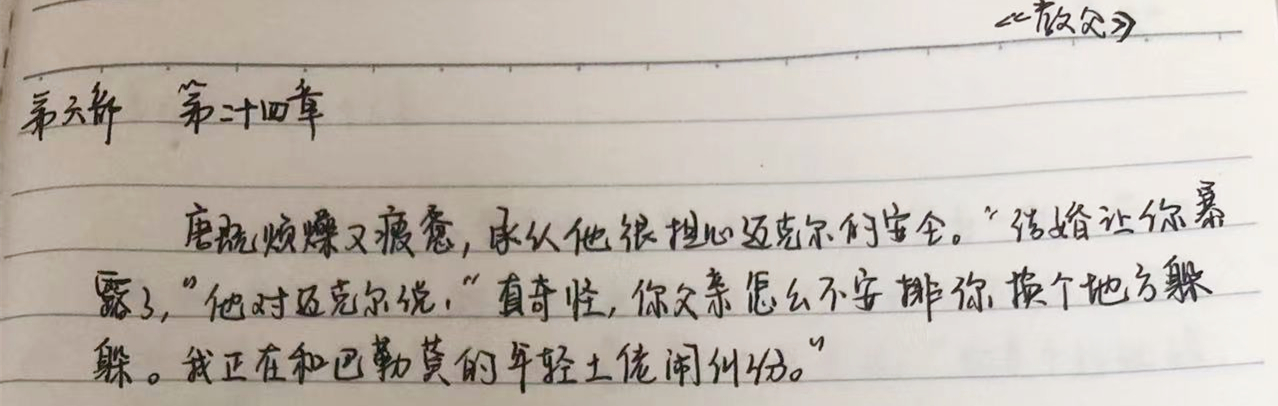 《教父》
第六部 第二十四章
唐既烦燥又疲惫，承认他很担心迈克尔的安全。“结婚让你暴
露了，”他对迈克尔说，“真奇怪，你父亲怎么不安排你换个地方躲
躲。我正在和巴勒莫的年轻土佬闹纠纷。”